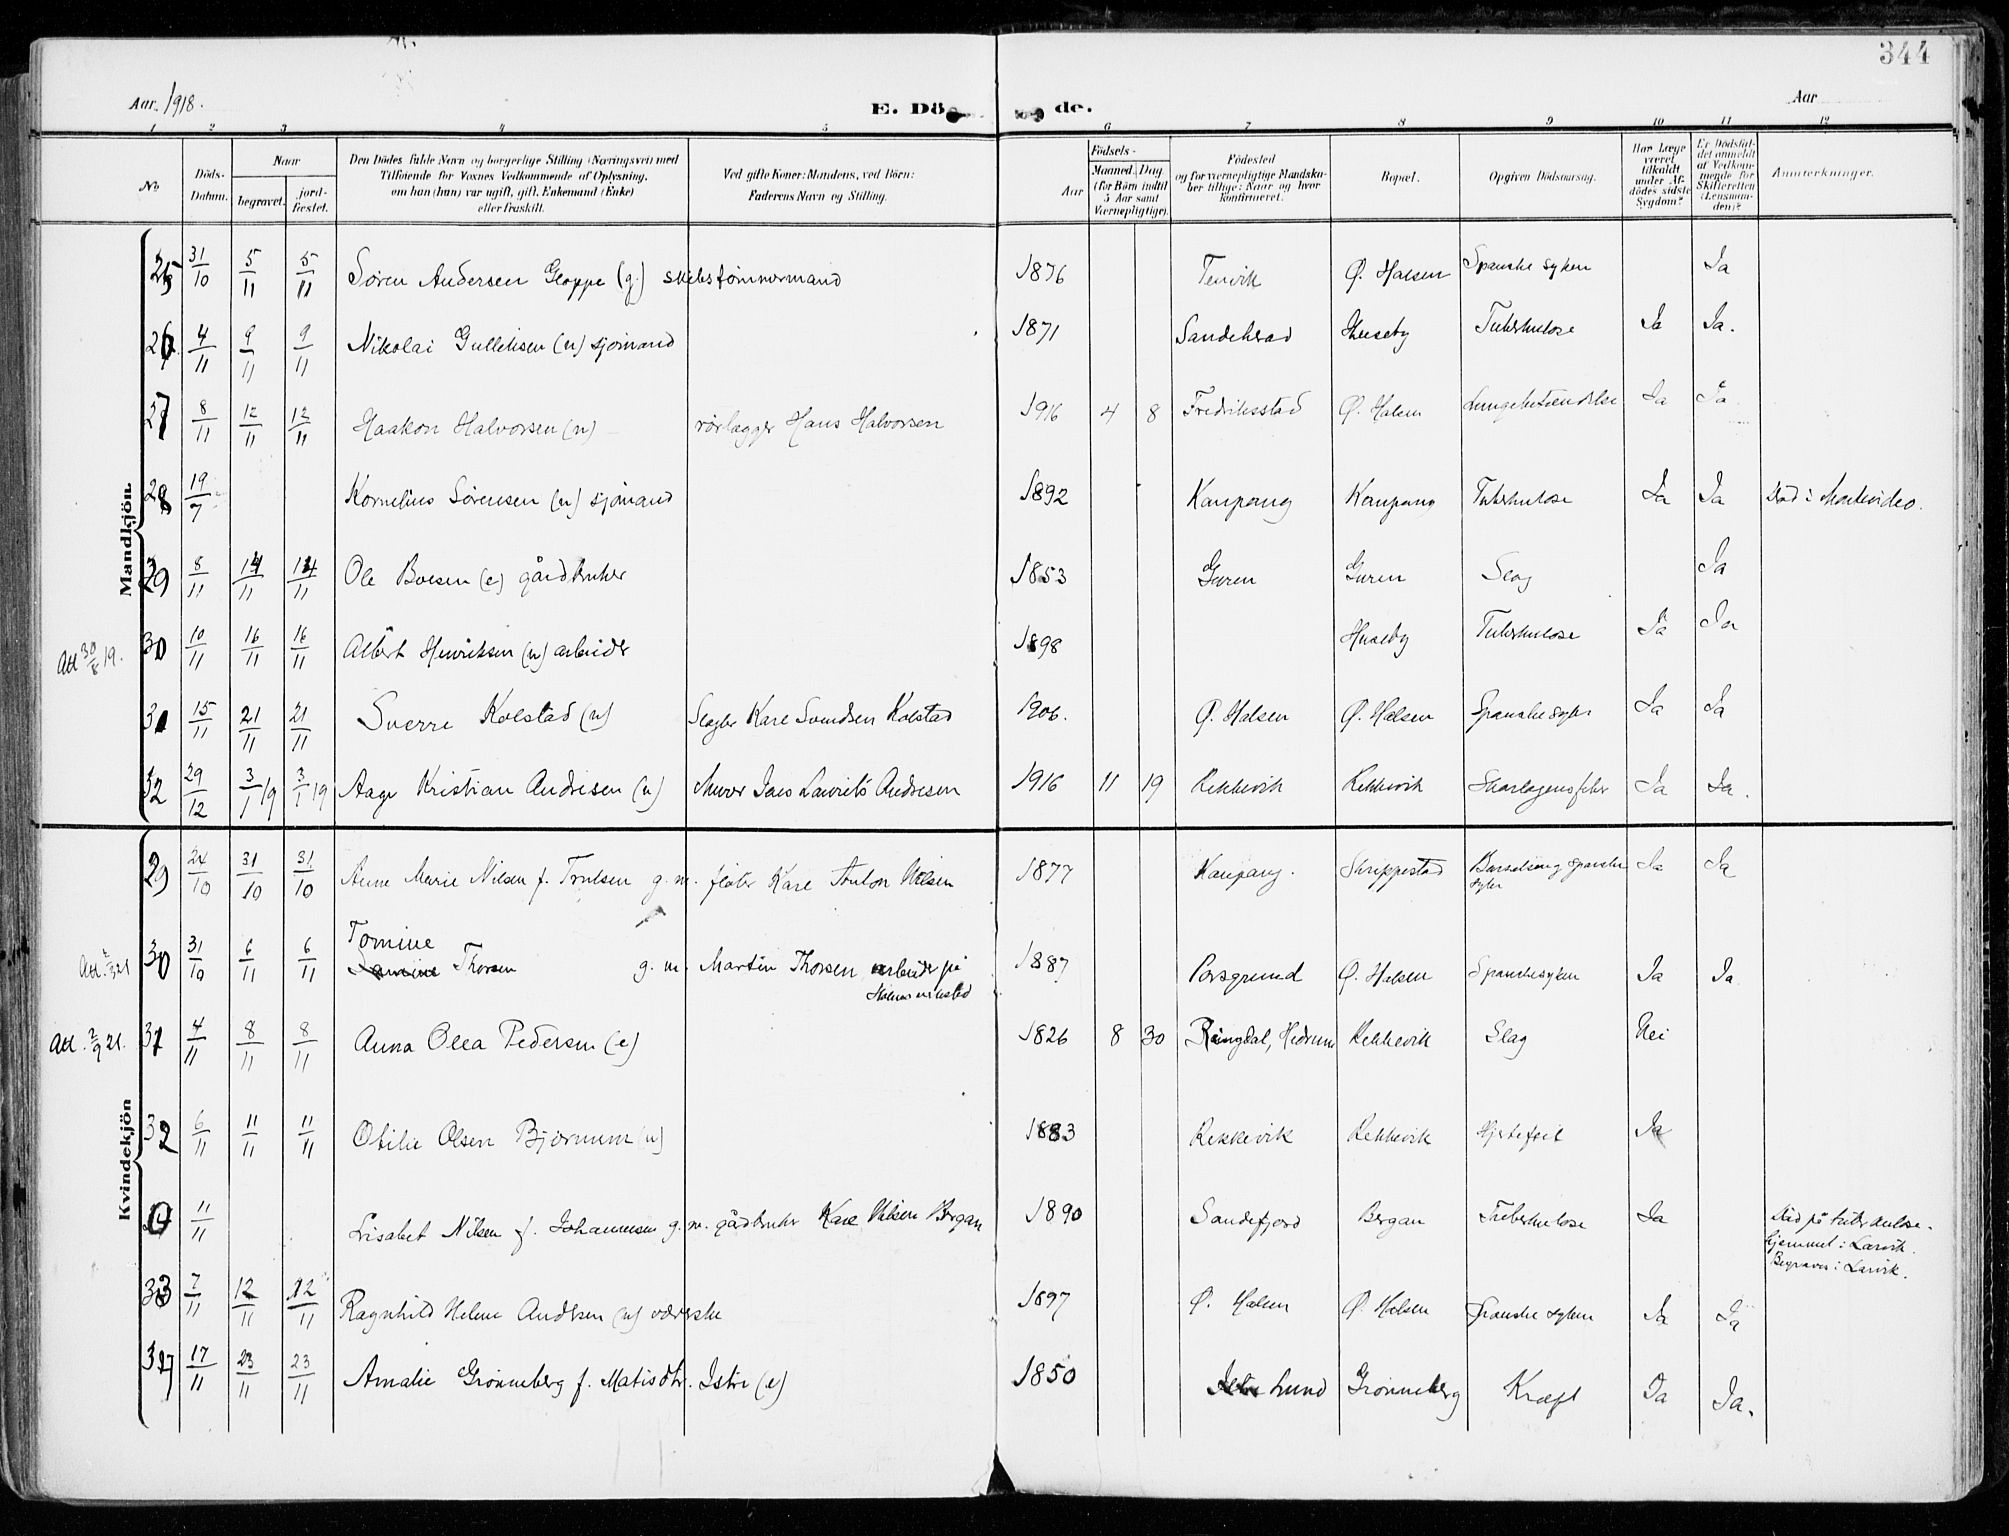 344
Aar. 1918.
E. Dö de.
Aar
1 2 3 4 5 6 7 8 9 10 11 12
No
Döds-Datum.
Naar
begravet.
jord-fæstet.
Den Dödes fulde Navn og borgerlige Stilling (Næringsvei) med
Tilföiende for Voxnes Vedkommende af Oplysning,
om han (hun) var ugift, gift, Enkemand (Enke)
eller fraskilt.
Ved gifte Koner: Mandens, ved Börn:
Faderens Navn og Stilling.
Födsels-
Aar
Maaned. Dag.
(for Börn indtil
5 Aar samt
Værnepligtige).
Födested
og for værnepligtige Mandska-
ber tillige: Naar og hvor
konfirmeret.
Bopæl.
Opgiven Dödsaarsag.
Har Læge
været
tilkaldt
under Af-
dödes sidste
Sygdom?
Er Dödsfal-
det anmeldt
af Vedkom-
mende for
Skifteretten
(Lensman-
den)?
Anmærkninger.
Mandkjön.
25 31/10 5/11 5/11 Søren Andersen Gloppe (g.) skibstømmermand 1876 Tenvik Ø. Halsen Spanske syken Ja
26 4/11 9/11 9/11 Nikolai Gulliksen (u) sjømand 1871 Sandeherad Huseby Tuberkulose Ja Ja.
27 8/11 12/11 12/11 Haakon Halvorsen (u) rørlægger Hans Halvorsen 1916 4 8 Fredriksstad Ø. Halsen Lungebetændelse Ja Ja
28 19/7 Kornelius Sørensen (u) sjømand 1892 Kaupang Kaupang Tuberkulose Ja Ja Død i Montevideo.
29 8/11 14/11 14/11 Ole Boesen (e) gårdbruker 1853 Guren Guren Slag Ja
Att 30/8 19. 30 10/11 16/11 16/11 Albert Henriksen (u) arbeider 1898 Huseby Tuberkulose Ja Ja
31 15/11 21/11 21/11 Sverre Kolstad (u) Slagter Karl Svendsen Kolstad 1906. Ø. Halsen Ø. Halsen Spanske syke Ja Ja
32 29/12 3/1 19 3/1 19 Aage Kristian Andresen (u) Murer Jens Laurits Andresen 1916 11 19 Rekkevik Rekkevik Skarlagensfeber Ja Ja.
Kvindekjön
29 24/10 31/10 31/10 Anne Marie Nilsen f. Trulsen g. m. fløter Karl Anton Nilsen 1877 Kaupang. Skrippestad Barselseng spanske
syke Ja Ja
Tomine
30 31/10 6/11 6/11 Thorsen g. m. Martin Thorsen arbeider på 1887 Porsgrund Ø. Halsen Spanskesyken Ja Ja
31 4/11 8/11 8/11 Anna Olea Pedersen (e) 1826 8 30 Ringdal, Hedrum Rekkevik Slag Nei
32 6/11 11/11 11/11 Otilie Olsen Bjørnum (u) 1883 Rekkevik Rekkevik Hjertefeil Ja
11/11 Lisabet Nilsen f. Johannesen g. m. gårdbruker Karl Nilsen Bergan 1890 Sandefjord Bergan Tuberkulose Ja Død på tuberkulose-
hjemmet i Larvik.
Begraves i Larvik.
33 7/11 12/11 12/11 Ragnhild Helene Andersen (u) værerske 1897 Ø. Halsen Ø. Halsen Spanske syken Ja Ja
17/11 23/11 23/11 Amalie Grønneberg f. Matisdtr. Istre (e) 1850 Lund Grønneberg Kræft Ja Ja.